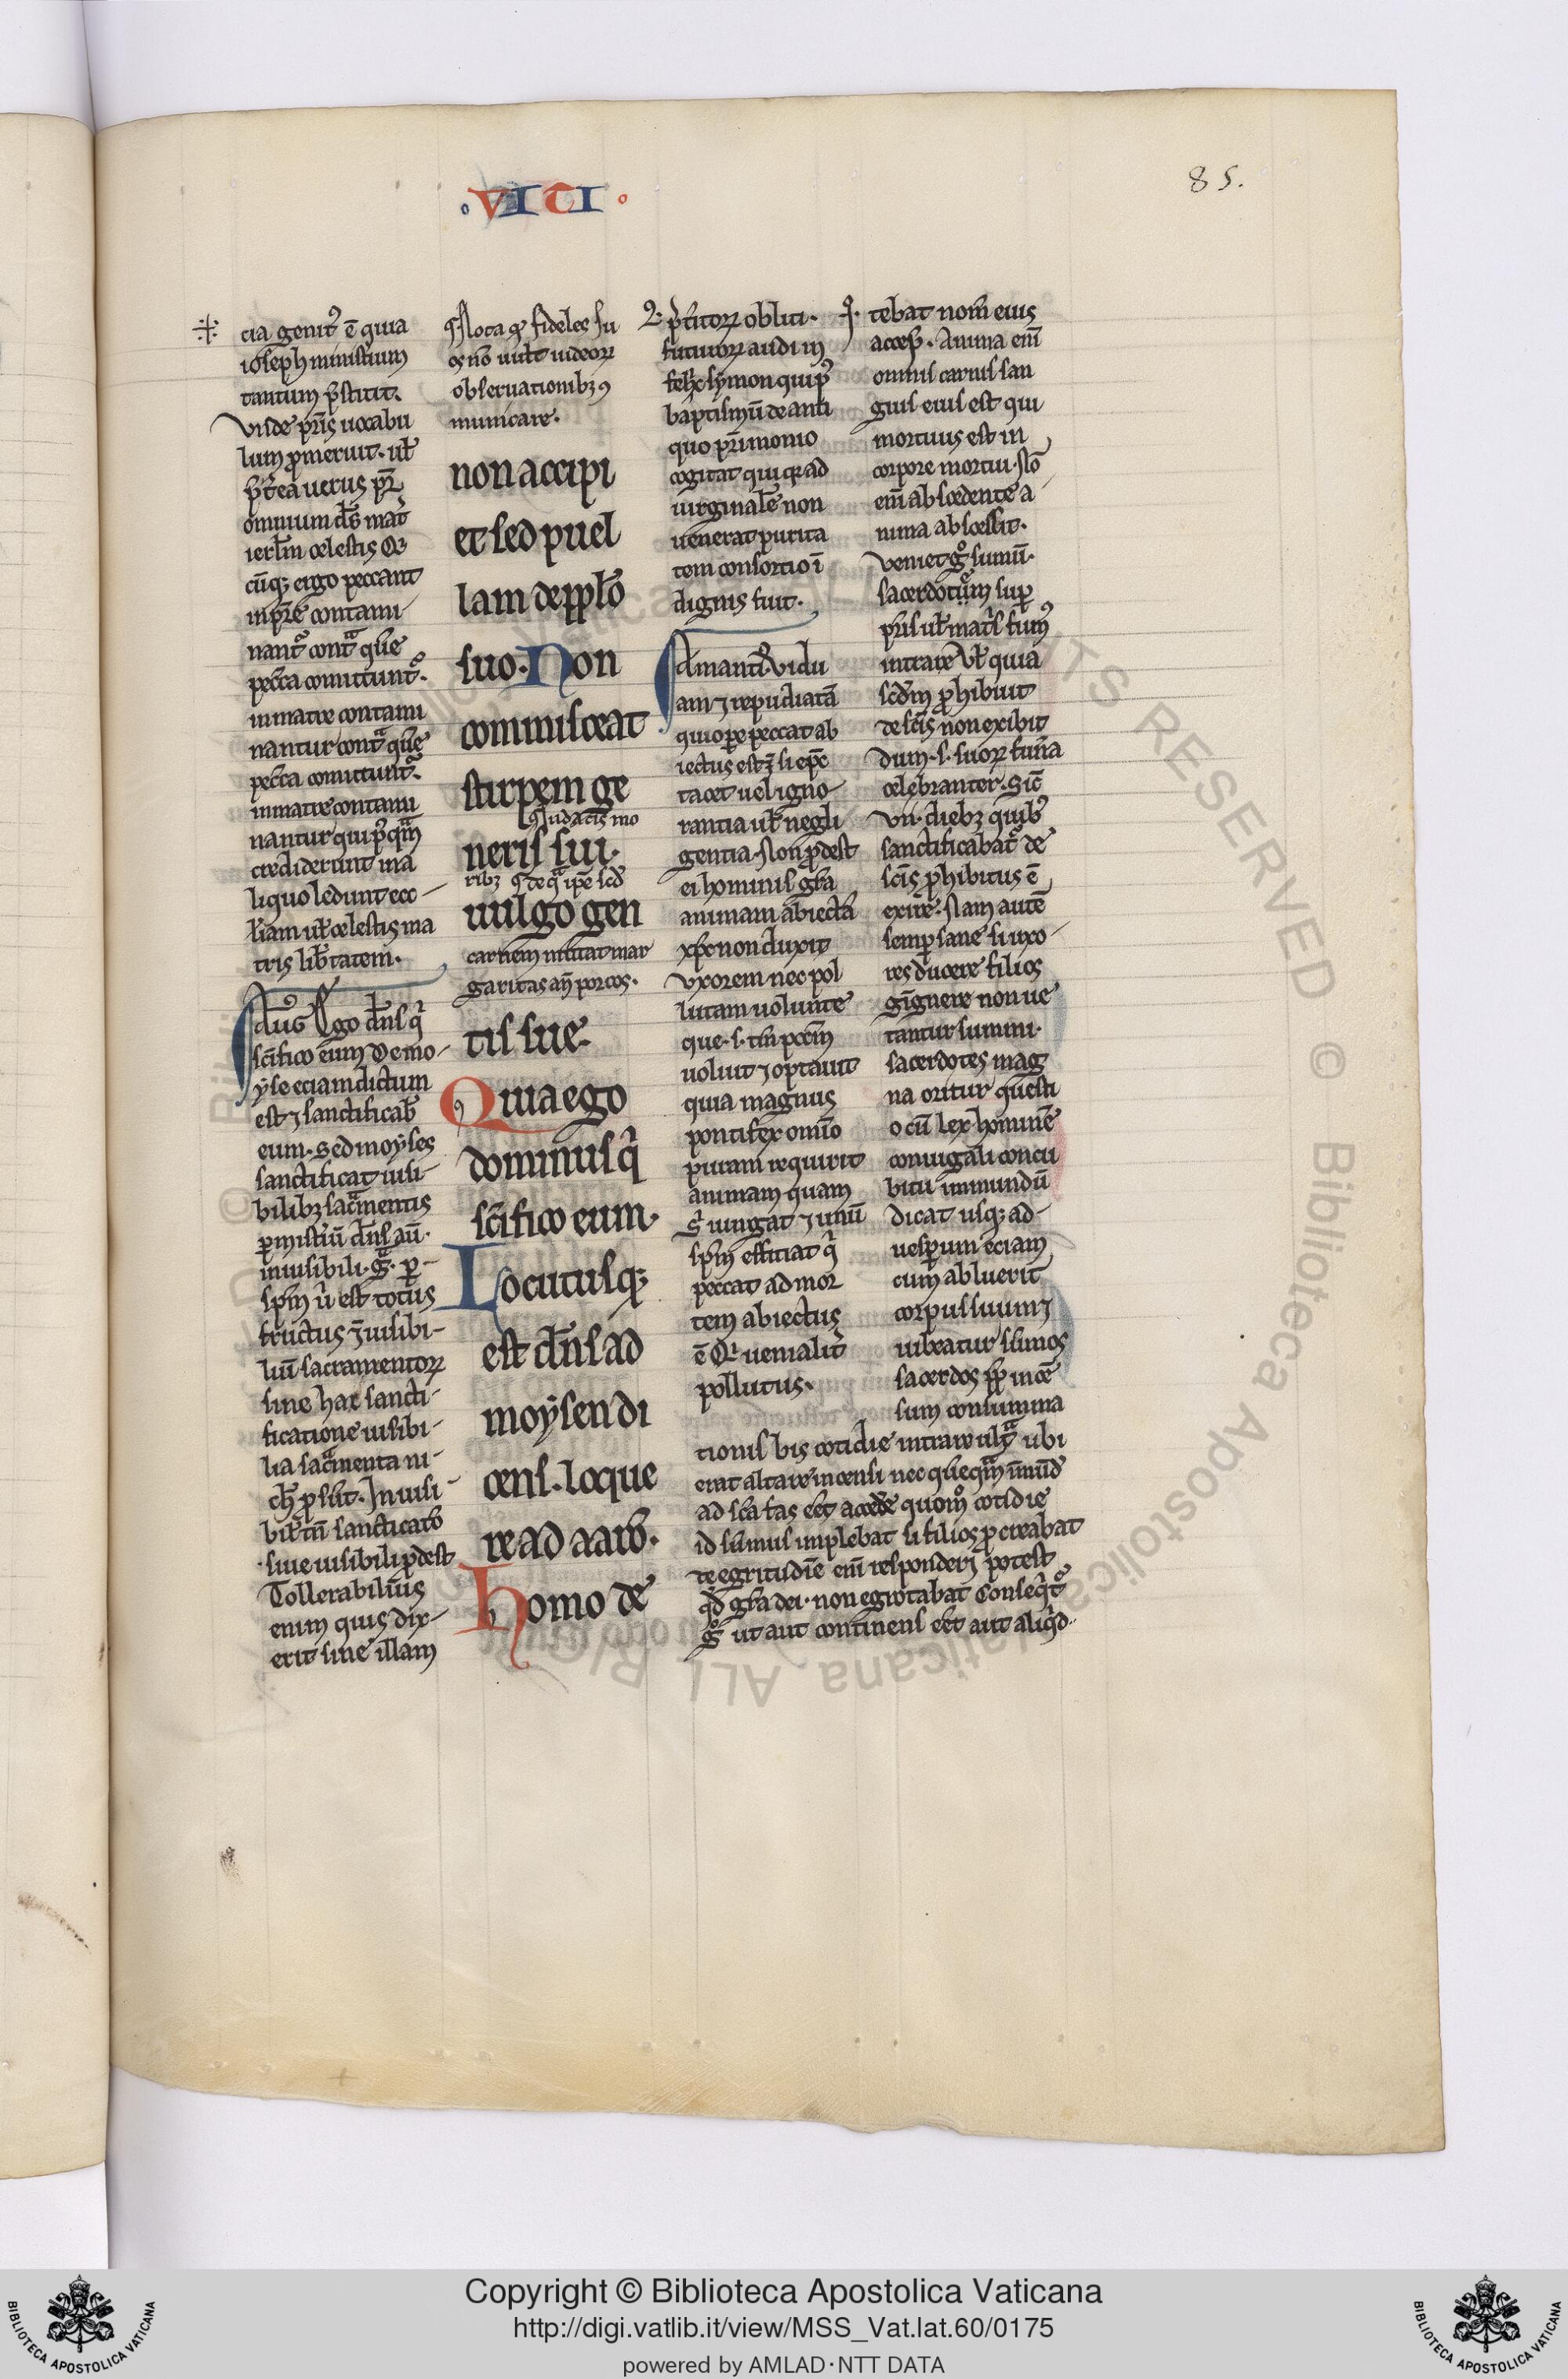 ·VITI·
85.
cia genit᷒ ē quia
ioseph ministium
tantum p̄stitit.
vnde pr̄is uocabu
lum ꝓmeruit. ul̄
p̄t̄ea uerus pr̄
omnium ds̄ mat̄
ierl̄m celestis Q͛
cūqꝫ ergo peccant
in pr̄e contami
nant᷒ contͣ que
pecc̄a comittunt᷒.
in matre contami
nantur contͣ que
pecc̄a comittunt᷒.
in matre contami
nantur qui p᷒qͣm
crediderunt in a
liquo ledunt ecc
l̄iam ul̄ celestis ma
tris lib̄tatem.
Aug᷒ Ego dn̄s qͥ
sc̄ifico eum De mo
yse eciam dictum
est ⁊ sanctificab̄
eum. Sed moyses
sanctificat uisi
bilibꝫ sacͣmentis
ꝑ mist̄iū dn̄s aū.
inuisibili. gͣ. ꝑ
sp̄m ū est totus
fructus ⁊ uisibi
liū sacramentoꝝ
sine hac sancti
ficatione uisibi
lia sacͣmenta ni
ch̄ ꝓsūt. Inuisi
bil̄ tn̄ sanctificatō
siue uisibili ꝓdest
Tollerabilius
enim quis dix
erit sine illam
¶Nota ꝙ fideles su
os nō uult uideoꝝ
obseruationibꝫ ꝯ
municare.
non accipi
et sed puel
lam de pplō
suo. Non
commisceat
stirpem ge
¶Iudaic̄is mo
neris sui.
ribꝫ ¶de qͣ ip̄e scd̄
uulgo gen
carnem mittat mar
garitas an̄ porcos.
tis sue.
Quia ego
dominus qͥ
sc̄ifico eum.
Locutusqꝫ
est dn̄s ad
moysen di
cens. Loque
re ad aarō.
Homo de
p̄titoꝝ obliti.
futuroꝝ audi in
felix symon qui p᷒
baptismū de anti
quo pr̄imonio
cogitat qui qꝛ ad
uirginal̄e non
uenerat purita
tem consortio ī
dignus fuit.
Amanti᷒. Vidu
am ⁊ repudiatā
qui ope peccat ab
iectus est ⁊ si ep̄c
tacet uel igno
rantia ul̄ negli
gentia. Non ꝓdest
ei hominis gr̄a
animam abiectā
xp̄c non duxit
vxorem nec pol
lutam uolunte
que. s. tm̄ pcc̄m
uoluit ⁊ optauit
quia magnus
pontifex omīo
puram requirit
animam quam
sͥ iungat ⁊ unū
sp̄m efficiat qͥ
peccat ad mor
tem abiectus
ē Qͥ uenialit̄
pollutus.
tebat nom̄ eius
accep̄. Anima em̄
omnis carnis san
guis eius est qui
mortuus est in
corpore mortui. Nō
em̄ abscedente a
nima abscessit.
Veniet gͦ sumū.
sacerdotum sup̄
pr̄is ul̄ mat̄s fun᷒
intrare Vl̄ quia
scd̄m ꝓhibuit
de sc̄is non exibit
dum. s. suoꝝ fun̄a
celebrantur. Sic̄
vii. diebꝫ quib᷒
sanctificabat᷒ de
sc̄is ꝓhibitus ē
exire. Nam aute
semꝑ sane si uxo
res ducere filios
gignere non ue
tantur summi
sacerdotes mag
na oritur questi
o cū lex hominē
coniugali concu
bitu immundū
dicat usqꝫ ad
uesꝑum eciam
cum abluerit
corpus suum ⁊
iubeatur sūmos
sacerdos ꝓpt̄ incē
sum consumma
tionis bis cotidie intrare ultͣ ubi
erat altare incensi nec queqͣm īmūd̄
ad sc̄a fas eēt accede quomͦ cotidie
id sūmus implebat si filios ꝓcreabat
te egritudīe em̄ responderi potest
qd̄ gr̄a dei. non egrotabat Conseqͥt᷒
gͦ ut aut continens eēt aut aliqͥd.
Copyright © Biblioteca Apostolica Vaticana
http://digi.vatlib.it/view/MSS_Vat.lat.60/0175
powered by AMLAD·NTT DATA
BIBLIOTECA APOSTOLICA VATICANA
BIBLIOTECA APOSTOLICA VATICANA